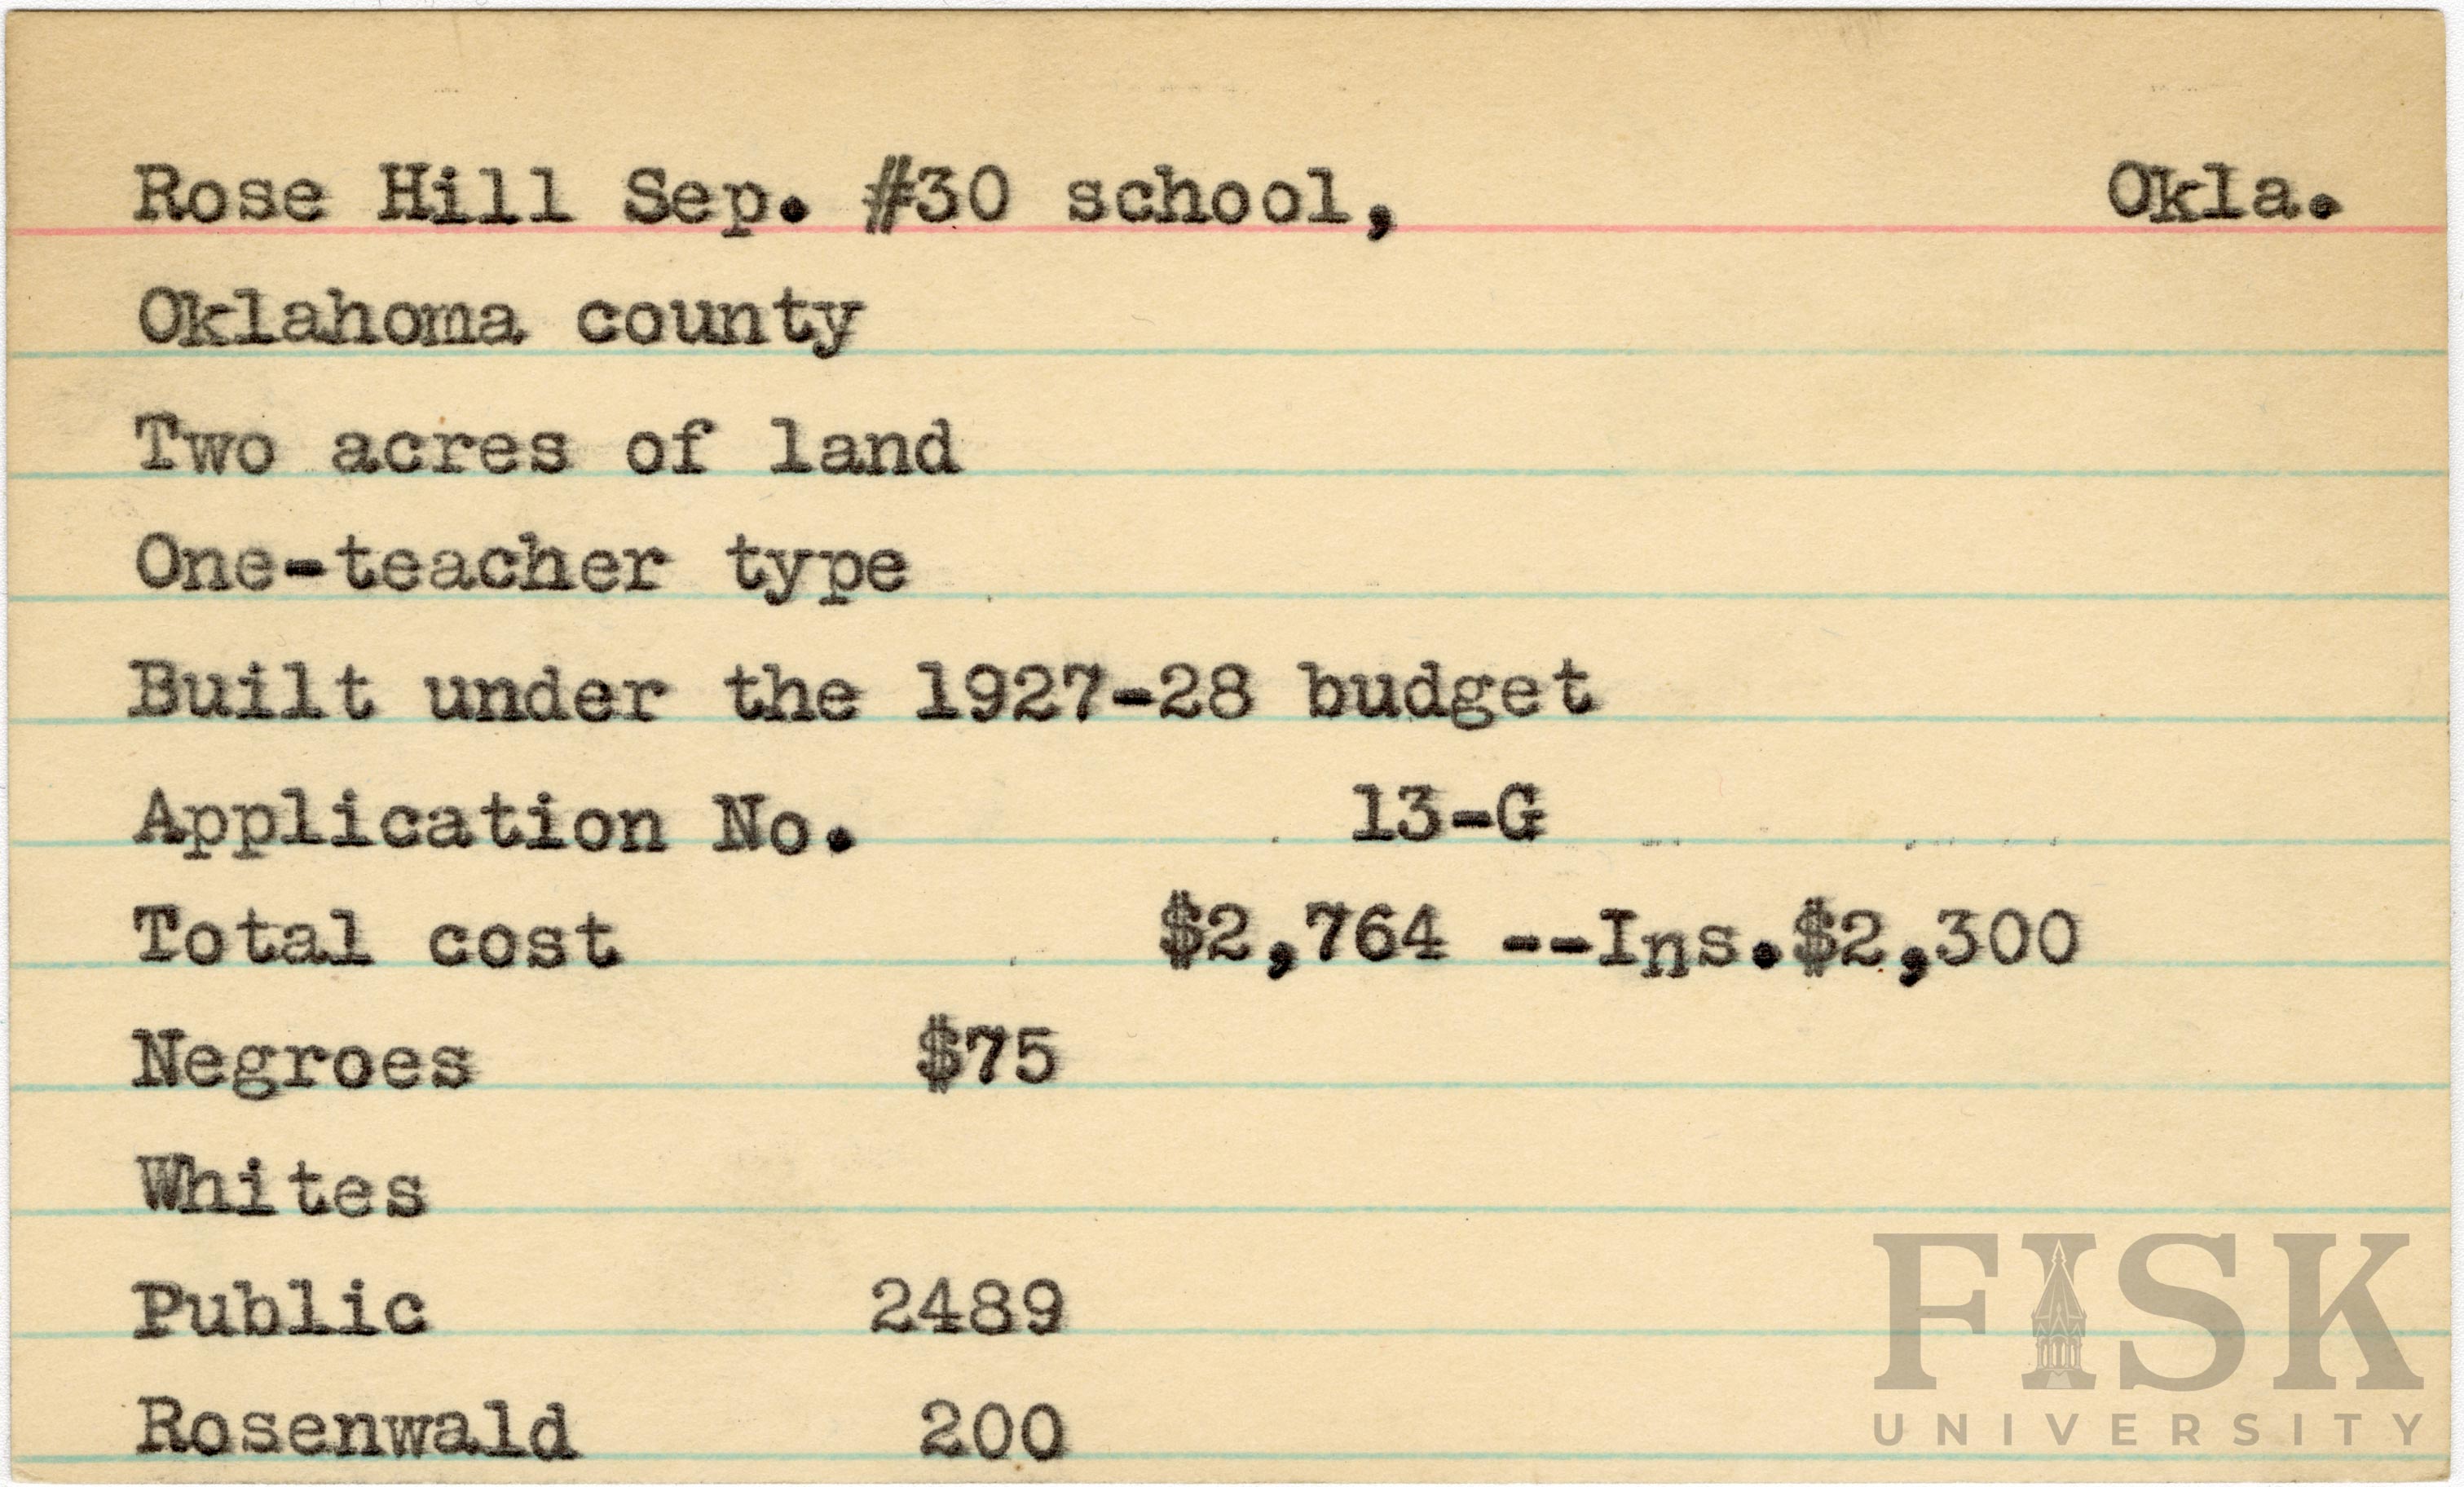 Rose Hill Sep. #30 school, Okla.
Oklahoma county
Two acres of land
One-teacher type
Built under the 1927-28 budget
Application No. 13-G
Total cost $2,764 --Ins.$2,300
Negroes $75
Whites
Public 2489
Rosenwald 200
FISK
UNIVERSITY